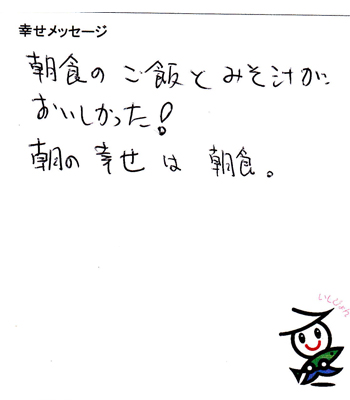 幸せメッセージ
朝食の ご飯と みそ汁が
おいしかった!
朝の 幸せ は 朝食。